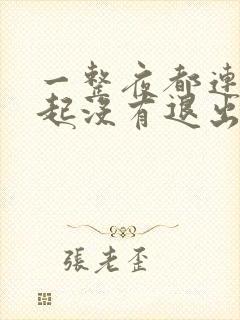 一整夜都連
起沒有退出
張老歪